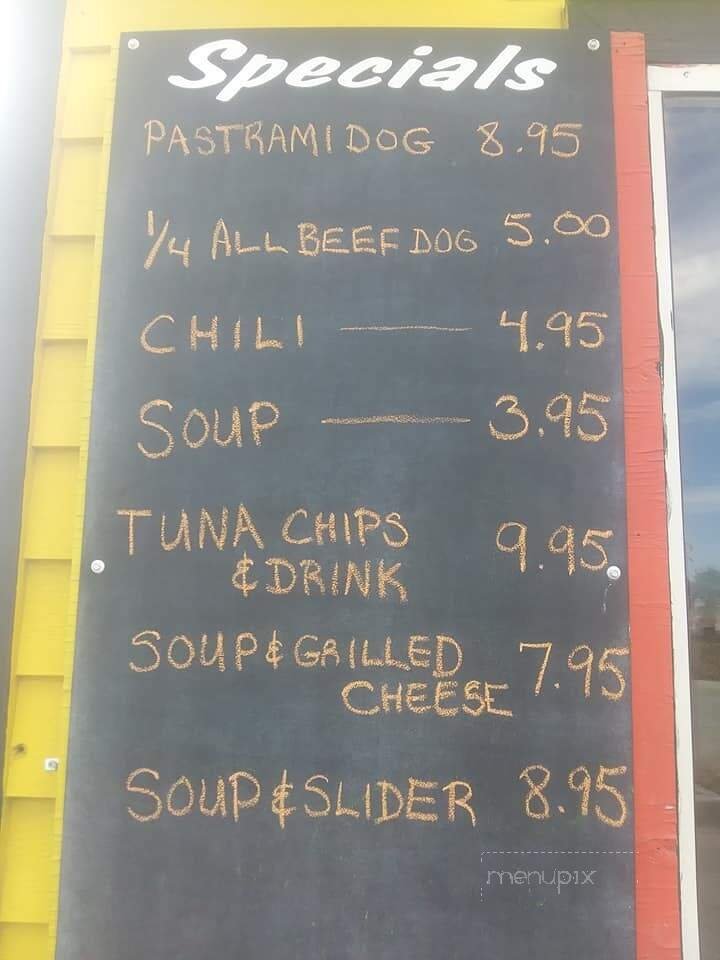 Specials
PASTRAMI DOG 8.95
1/4 ALL BEEF DOG 5.00
CHILI 4.95
SOUP 3.95
TUNA CHIPS 9.95
& DRINK
SOUP & GRILLED 7.95
CHEESE
SOUP & SLIDER 8.95
menupix